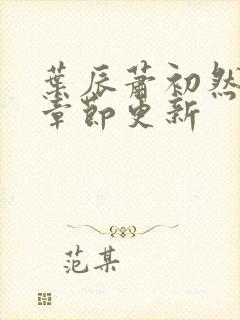 葉辰蕭初然
章節更新
范某